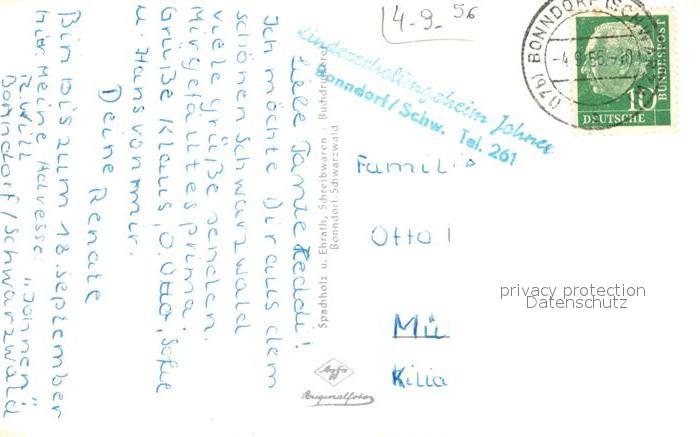 4-9-56
(17b) BONNDORF (SCHWARZW)
-4.9.56.-
10
DEUTSCHE
BUNDESPOST
Kindererholungsheim Johner
Bonndorf/Schw. Tel. 261
Liebe Tante Heddi!
Ich möchte Dir aus dem
schönen Schwarzwald
viele Grüße senden.
Mir gefällt es prima.
Grüße Klaus, O. Otto, Sofie
u. Hans von mir.
Deine Renate
Bin bis zum 18. September
hier. Meine Adresse: "Johnen"
Bonndorf/Schwarzwald
Spachholz u. Ehrath, Schreibwaren - Buchdruckerei
Bonndorf-Schwarzwald
Agfa
Originalfoto
Familie
Otto
Mü
Kilia
privacy protection
Datenschutz